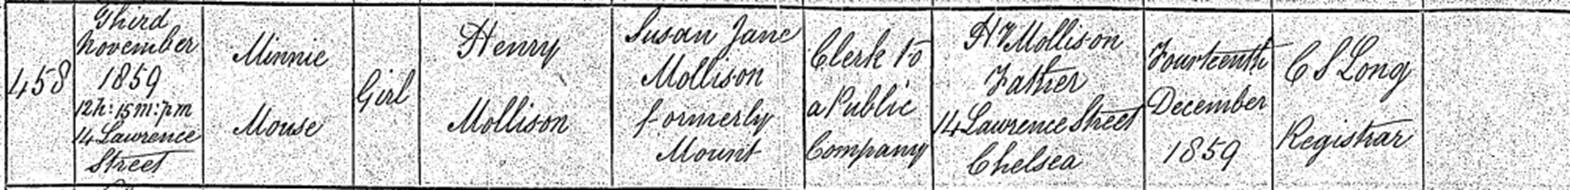 458
Third
November
1859
12h: 15m: pm
14 Lawrence
Street
Minnie
Mouse
Girl
Henry
Mollison
Susan Jane
Mollison
formerly
Mount
Clerk to
a Public
Company
Hy Mollison
Father
14 Lawrence Street
Chelsea
Fourteenth
December
1859
C S Long
Registrar